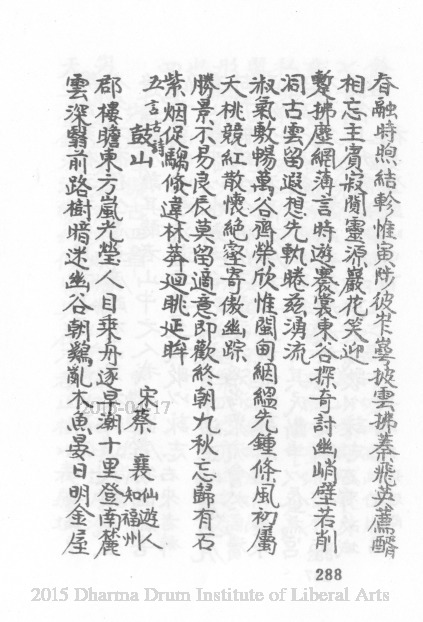 春融時煦結軫惟寅陟彼岝㠋披雲拂蓁飛英薦醑
相忘主賓寂閴靈源巖花笑迎
蹔拂塵網薄言時遊褰裳東谷探奇討幽峭壁若削
洞古雲留遐想先軌睠茲湧流
淑氣敷暢萬谷齊榮欣惟閩甸絪縕先鍾條風初屬
夭桃競紅散懷絕壑寄傲幽踪
勝景不易良辰莫留適意即歡終朝九秋忘歸有石
紫烟促騶倐違林莽廻眺延眸
五言古詩
鼓山
宋蔡襄仙遊人知福州
郡樓瞻東方嵐光瑩人目乗舟逐早潮十里登南麓
雲深翳前路樹暗迷幽谷朝鷄亂木魚晏日明金屋
2015-04-17
288
2015 Dharma Drum Institute of Liberal Arts